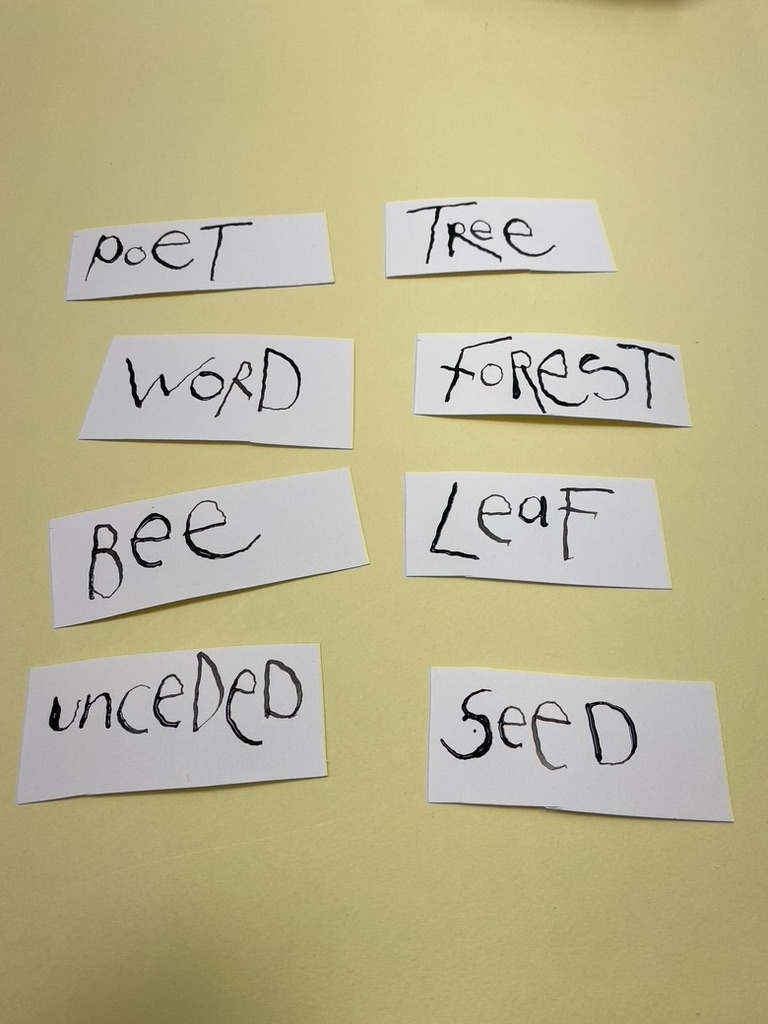 PoeT
TRee
WORD
FOREST
Bee
LeaF
unceDeD
SeeD